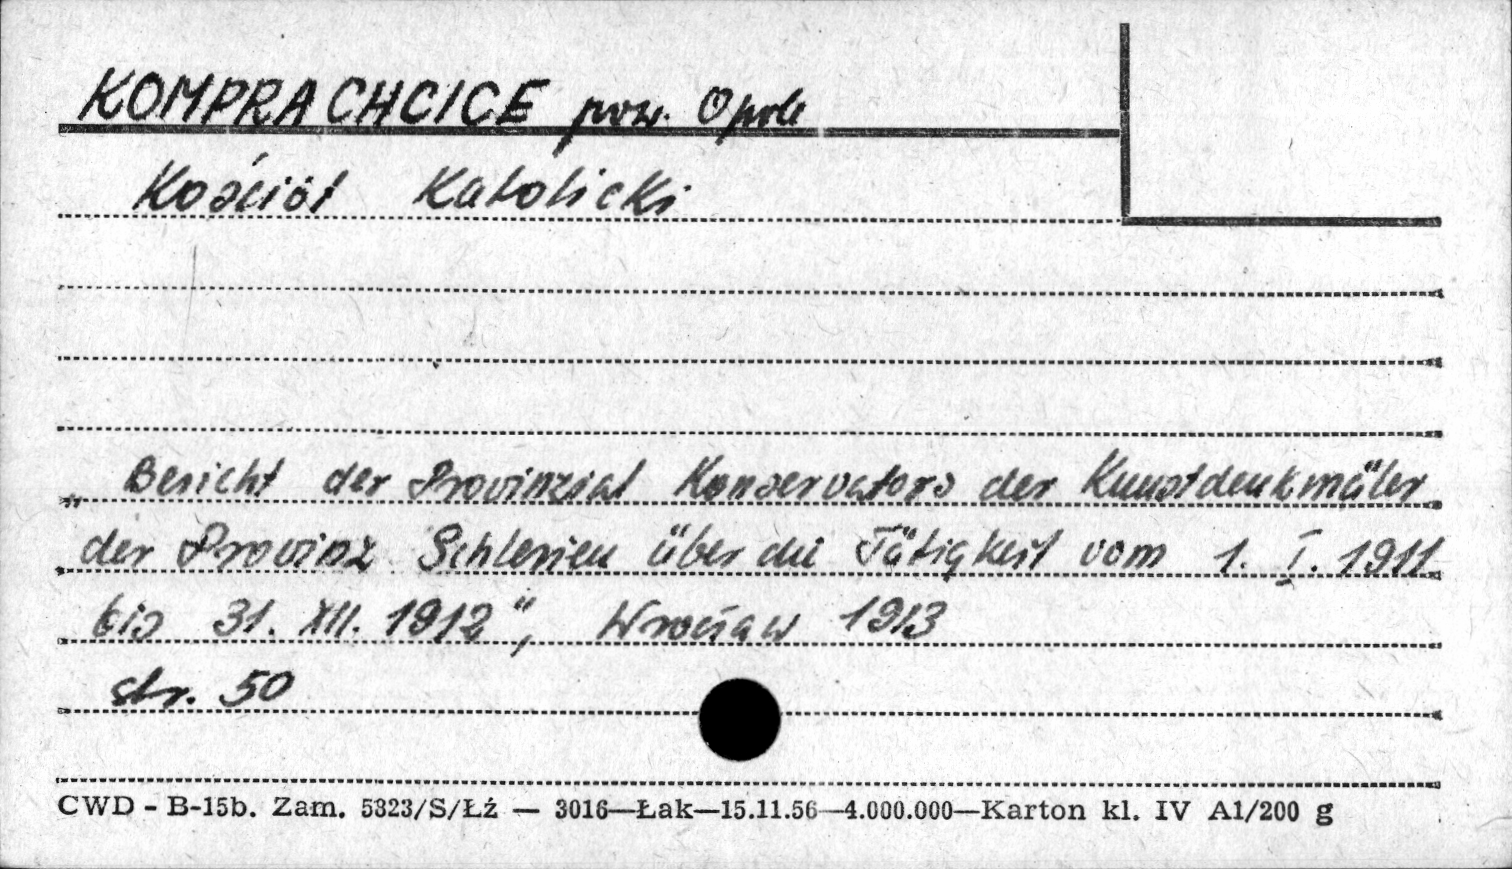 KOMPRACHCICE pow. Opole
Kościół Katolicki
„Bericht der Provinzial Konservators der Kunstdenkmäler
der Provinz Schlesien über die Tätigkeit vom 1. I. 1911
bis 31. XII. 1912", Wrocław 1913
str. 50
CWD - B-15b. Zam. 5323/S/Łź — 3016—Łak—15.11.56—4.000.000—Karton kl. IV A1/200 g